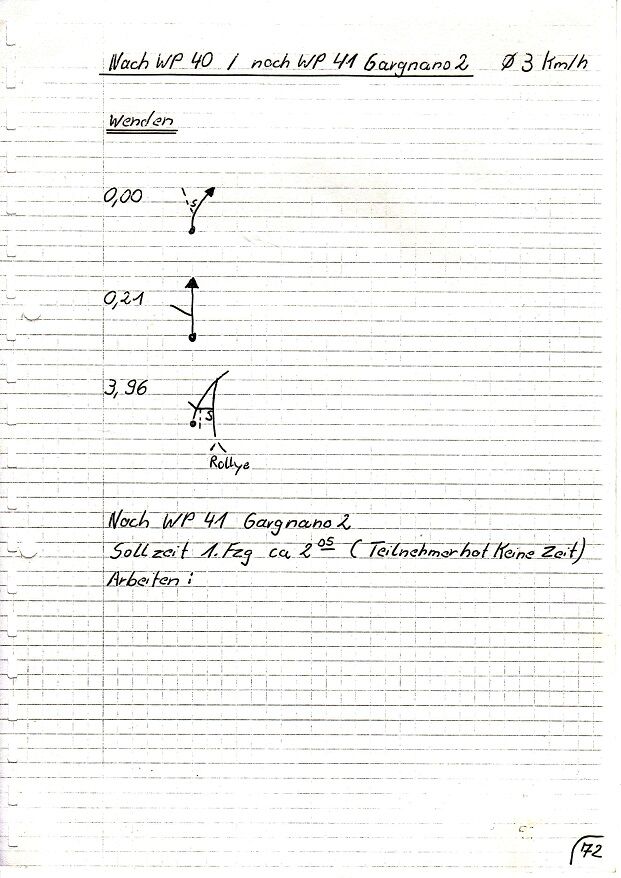 Nach WP 40 / nach WP 41 Gargnano 2 Ø 3 Km/h
Wenden
0,00
S
0,21
3,96
S
Rollye
Nach WP 41 Gargnano 2
Sollzeit 1. Fzg ca 2 05 (Teilnehmer hat Keine Zeit)
Arbeiten :
72